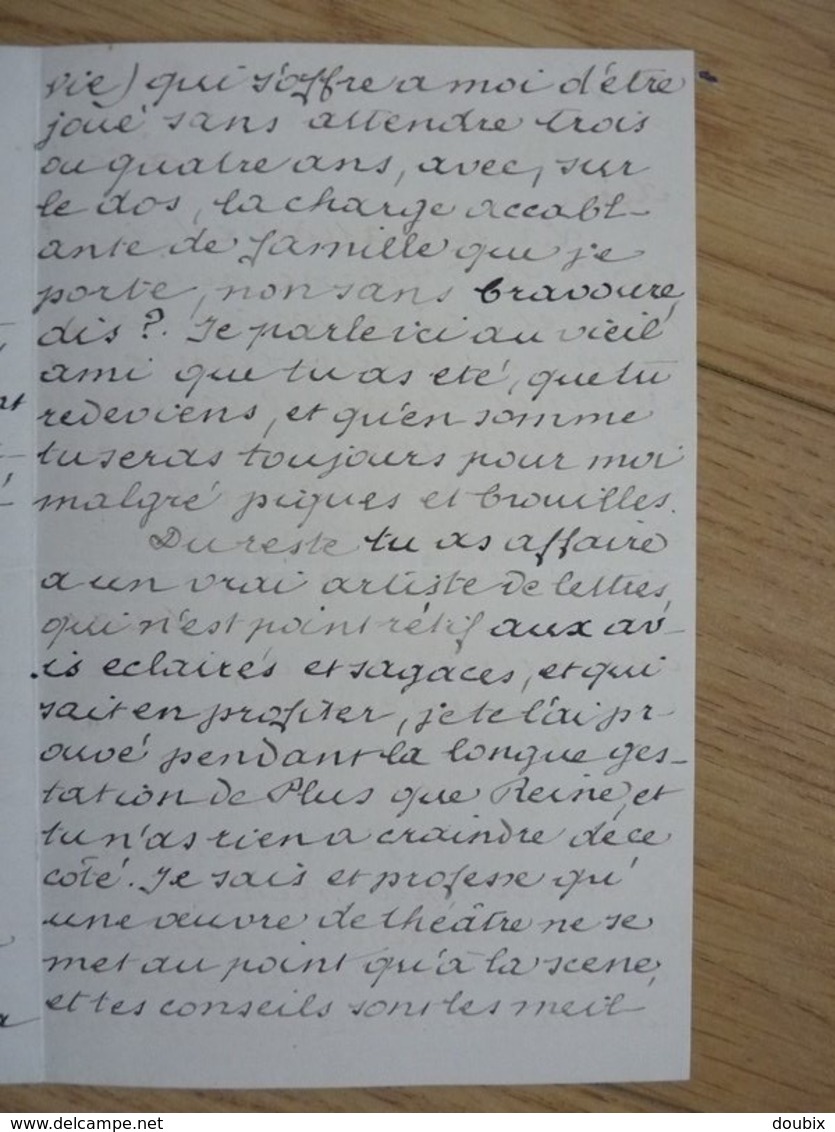 vie) qui s'offre a moi d'être
joué sans attendre trois
ou quatre ans, avec, sur
le dos, la charge accabl-
ante de famille que je
porte, non sans bravoure,
dis ?. Je parle ici au vieil
ami que tu as eté, que tu
redeviens, et qu'en somme
tu seras toujours pour moi
malgré piques et brouilles.
Du reste tu as affaire
a un vrai artiste de lettres,
qui n'est point rétif aux av-
is eclairés et sagaces, et qui
sait en profiter, je te l'ai pr-
ouvé pendant la longue ges-
tation de Plus que Reine, et
tu n'as rien a craindre de ce
côté. Je sais et professe qu'
une œuvre de théâtre ne se
met au point qu'à la scene,
et tes conseils sont les meil-
www.delcampe.net
doubix